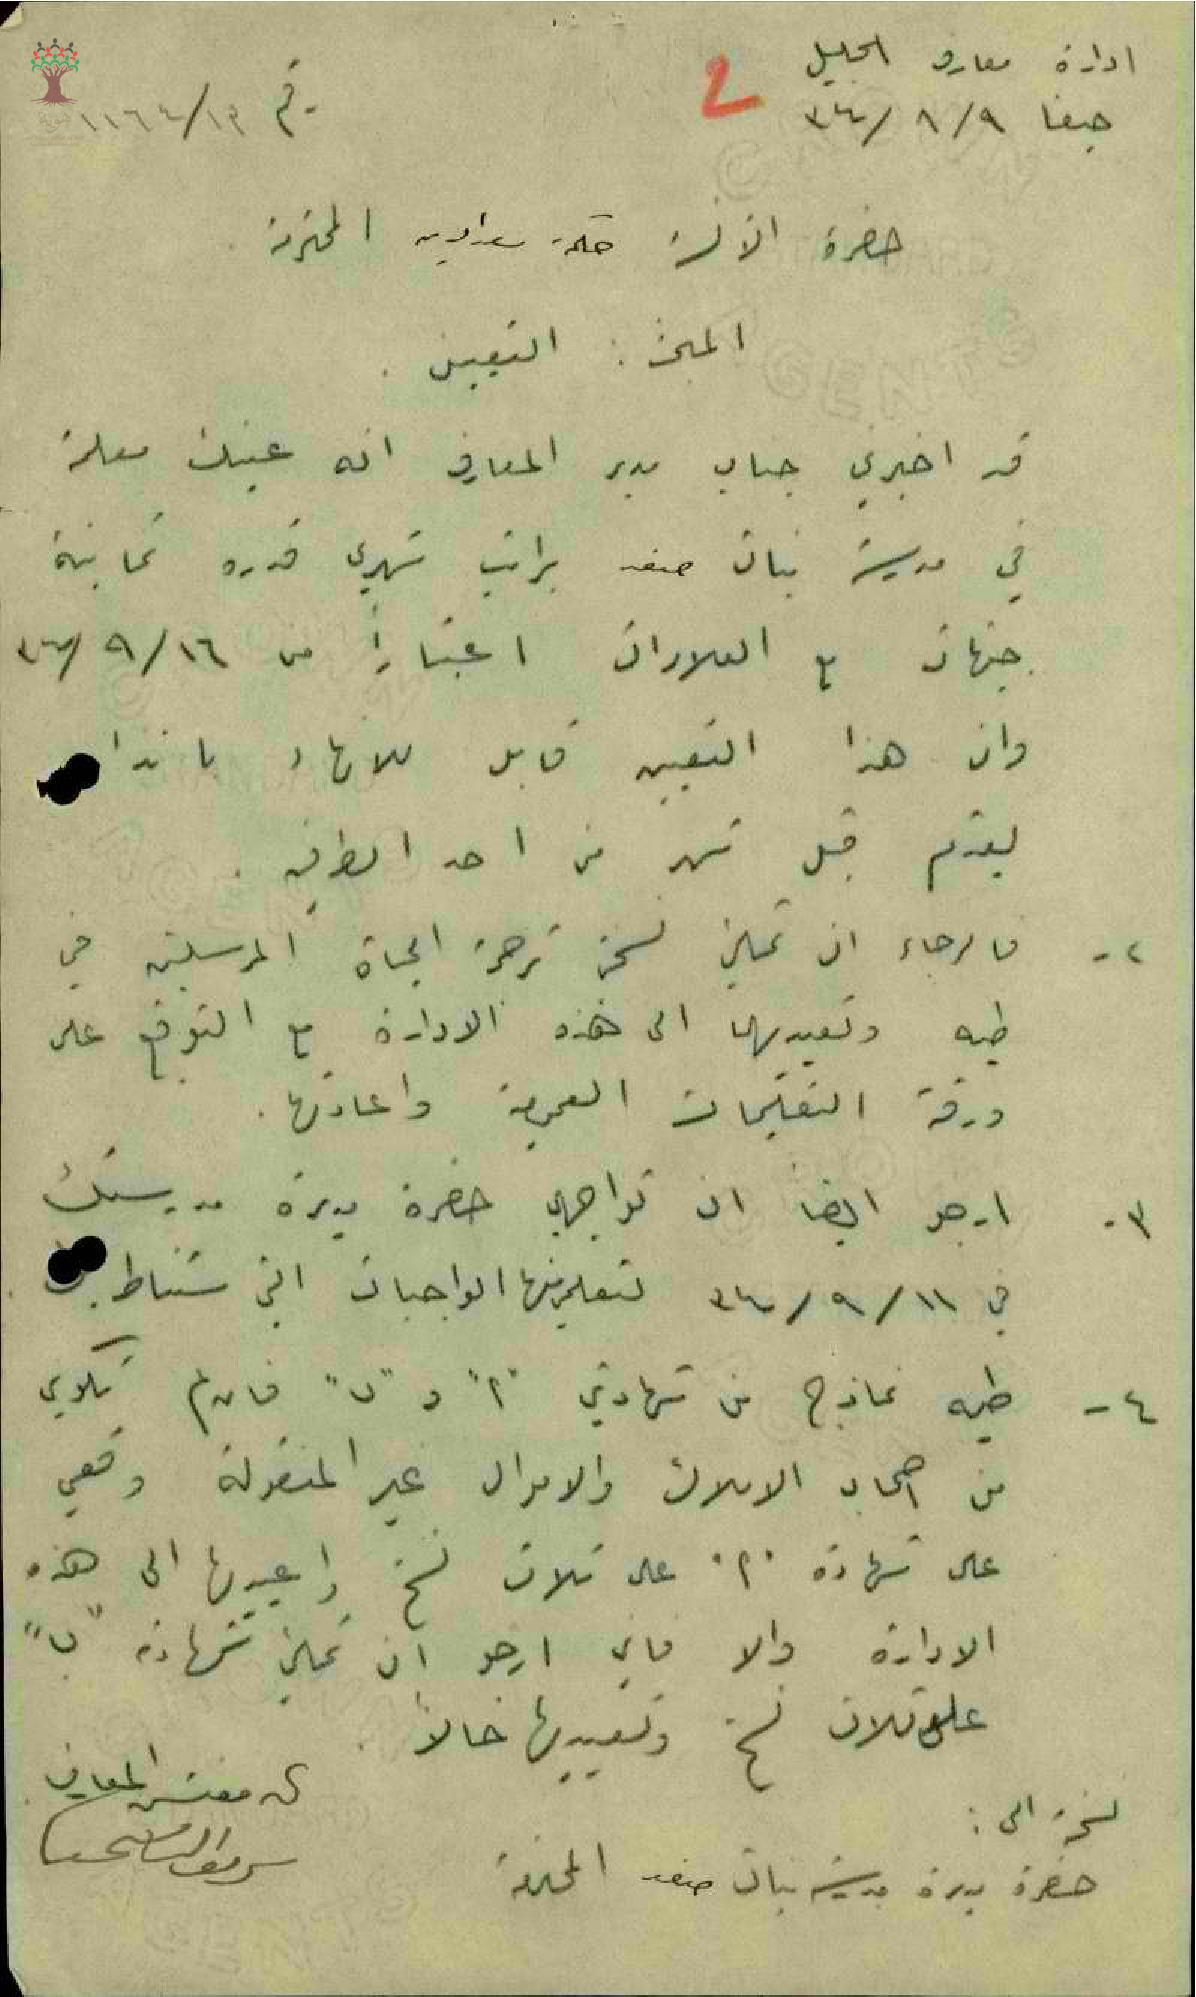 ادارة معارف الجليل
حيفا ٩/٨/٣٤
رقم ١٣/١١٦٤
٢
حضرة الآنسة حكمت المحترمة
المبحث : التعيين .
قد اخبرني جناب مدير المعارف انه عينك معلمة
في مدرسة بنات صفد براتب شهري قدره ثمانية
جنيهات مع العلاوات اعتباراً من ١٦/٩/٣٤
وان هذا التعيين قابل للانهاء بانذار
يقدم قبل شهر من احد الطرفين .
٢- فالرجاء ان تملئي نسختي ترجمة الحياة المرسلتين في
طيه وتعيديهما الى هذه الادارة مع التوقيع على
ورقة التعليمات العمومية واعادتها .
٣- ارجو ايضا ان تواجهي حضرة مديرة مدرستك
في ١١/٩/٣٤ لتعلمي منها الواجبات التي ستناط بك .
٤- طيه نماذج من شهادتي "أ" و "ب" فان لم تكوني
من اصحاب الاملاك والاموال غير المنقولة وقعي
على شهادة "أ" على ثلاث نسخ واعيديها الى هذه
الادارة والا فاني ارجو ان تملئي شهادة "ب"
على ثلاث نسخ وتعيديها حالاً .
مفتش المعارف
نسخة الى :
حضرة مديرة مدرسة بنات صفد المحترمة